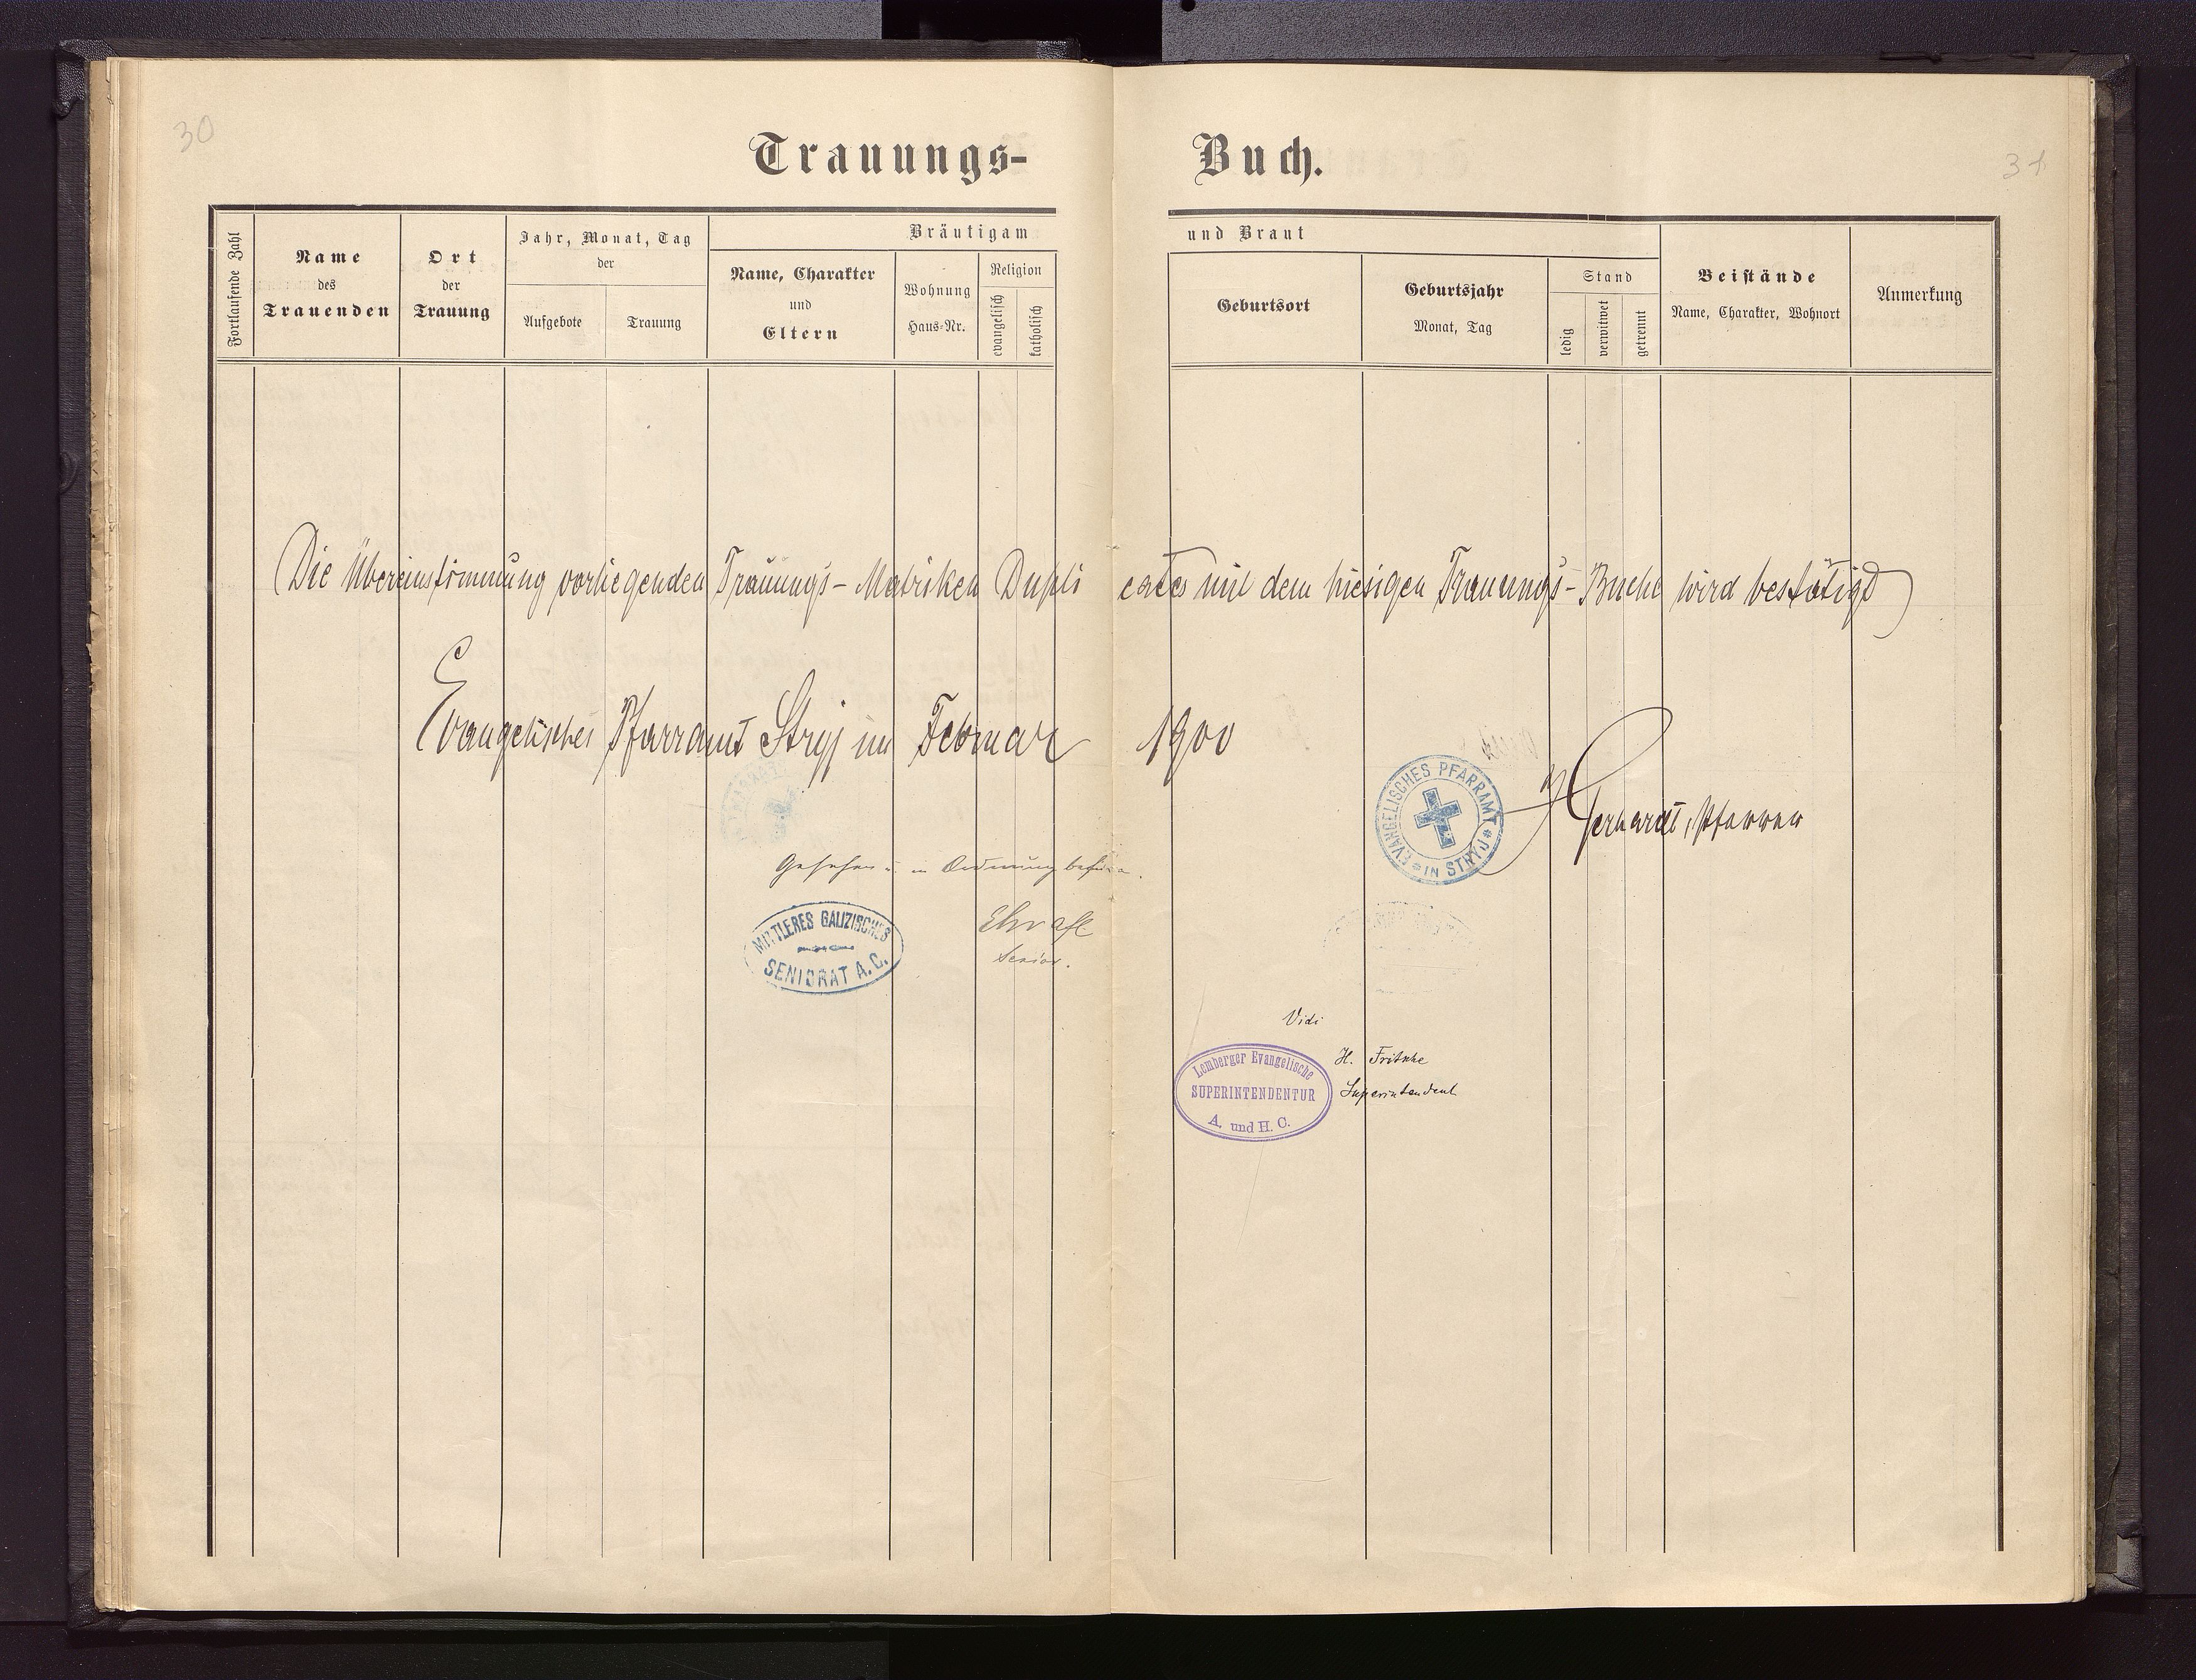 30
31
Trauungs- Buch.
Fortlaufende Zahl
Name
des
Trauenden
Ort
der
Trauung
Jahr, Monat, Tag
der
Aufgebote
Trauung
Bräutigam und Braut
Name, Charakter
und
Eltern
Wohnung
Haus-Nr.
Religion
evangelisch
katholisch
Geburtsort
Geburtsjahr
Monat, Tag
Stand
ledig
verwitwet
getrennt
Beistände
Name, Charakter, Wohnort
Anmerkung
Die Übereinstimmung vorliegenden Trauungs-Matriken Dupli cates mit dem hiesigen Trauungs-Buche wird bestätigt
Evangelisches Pfarramt Stryj im Februar 1900
EVANGELISCHES PFARRAMT
IN STRYJ
Gerhardt, Pfarrer
Gesehen u. in Ordnung
MITTLERES GALIZISCHES
SENIORAT A.C.
Senior.
Vidi
Lemberger Evangelische
SUPERINTENDENTUR
A. und H. C.
H. Fritsche
Superintendent